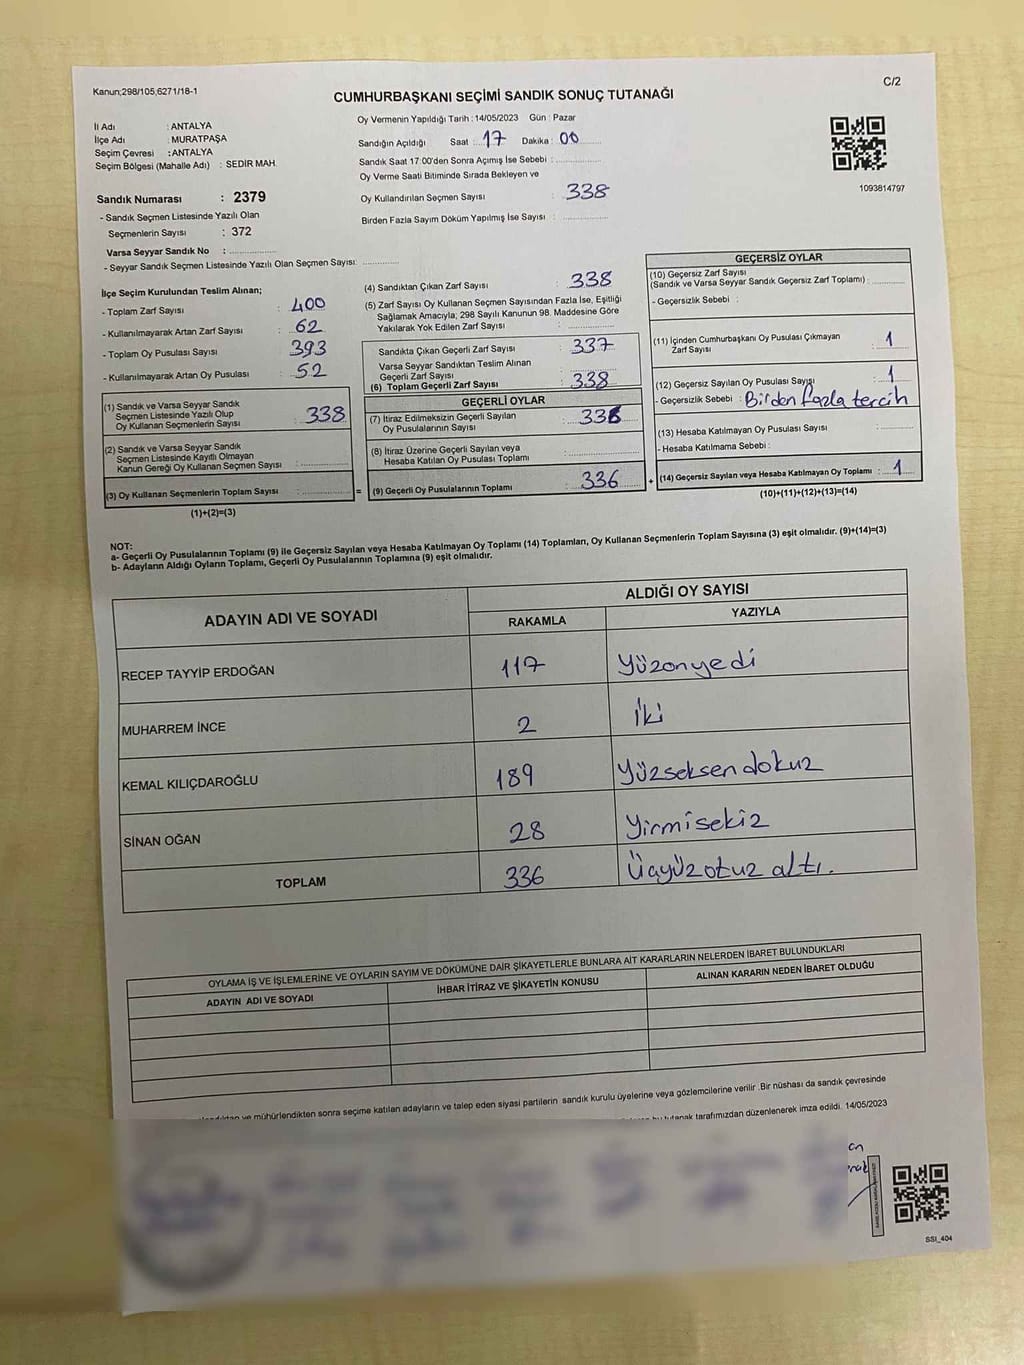 Kanun;298/105;6271/18-1
C/2
CUMHURBAŞKANI SEÇİMİ SANDIK SONUÇ TUTANAĞI
İl Adı : ANTALYA
İlçe Adı : MURATPAŞA
Seçim Çevresi : ANTALYA
Seçim Bölgesi (Mahalle Adı) : SEDİR MAH.
Sandık Numarası : 2379
- Sandık Seçmen Listesinde Yazılı Olan
Seçmenlerin Sayısı : 372
Varsa Seyyar Sandık No : ..................
- Seyyar Sandık Seçmen Listesinde Yazılı Olan Seçmen Sayısı: .............
Oy Vermenin Yapıldığı Tarih : 14/05/2023 Gün : Pazar
Sandığın Açıldığı Saat : 17 Dakika : 00
Sandık Saat 17:00'den Sonra Açımış İse Sebebi : ................
Oy Verme Saati Bitiminde Sırada Bekleyen ve
Oy Kullandırılan Seçmen Sayısı : 338
Birden Fazla Sayım Döküm Yapılmış İse Sayısı : ................
1093814797
İlçe Seçim Kurulundan Teslim Alınan;
- Toplam Zarf Sayısı : 400
- Kullanılmayarak Artan Zarf Sayısı : 62
- Toplam Oy Pusulası Sayısı : 393
- Kullanılmayarak Artan Oy Pusulası : 52
(1) Sandık ve Varsa Seyyar Sandık
Seçmen Listesinde Yazılı Olup
Oy Kullanan Seçmenlerin Sayısı : 338
(2) Sandık ve Varsa Seyyar Sandık
Seçmen Listesinde Kayıtlı Olmayan
Kanun Gereği Oy Kullanan Seçmen Sayısı : ................
(3) Oy Kullanan Seçmenlerin Toplam Sayısı : ................ =
(1)+(2)=(3)
(4) Sandıktan Çıkan Zarf Sayısı : 338
(5) Zarf Sayısı Oy Kullanan Seçmen Sayısından Fazla İse, Eşitliği
Sağlamak Amacıyla; 298 Sayılı Kanunun 98. Maddesine Göre
Yakılarak Yok Edilen Zarf Sayısı : ................
Sandıkta Çıkan Geçerli Zarf Sayısı : 337
Varsa Seyyar Sandıktan Teslim Alınan
Geçerli Zarf Sayısı :
(6) Toplam Geçerli Zarf Sayısı : 338
GEÇERLİ OYLAR
(7) İtiraz Edilmeksizin Geçerli Sayılan
Oy Pusulalarının Sayısı : 336
(8) İtiraz Üzerine Geçerli Sayılan veya
Hesaba Katılan Oy Pusulası Toplamı : ................
(9) Geçerli Oy Pusulalarının Toplamı : 336 +
GEÇERSİZ OYLAR
(10) Geçersiz Zarf Sayısı
(Sandık ve Varsa Seyyar Sandık Geçersiz Zarf Toplamı) : ............
- Geçersizlik Sebebi :
(11) İçinden Cumhurbaşkanı Oy Pusulası Çıkmayan
Zarf Sayısı : 1
(12) Geçersiz Sayılan Oy Pusulası Sayısı : 1
- Geçersizlik Sebebi : Birden fazla tercih
(13) Hesaba Katılmayan Oy Pusulası Sayısı : ............
- Hesaba Katılmama Sebebi :
(14) Geçersiz Sayılan veya Hesaba Katılmayan Oy Toplamı : 1
(10)+(11)+(12)+(13)=(14)
NOT:
a- Geçerli Oy Pusulalarının Toplamı (9) ile Geçersiz Sayılan veya Hesaba Katılmayan Oy Toplamı (14) Toplamları, Oy Kullanan Seçmenlerin Toplam Sayısına (3) eşit olmalıdır. (9)+(14)=(3)
b- Adayların Aldığı Oyların Toplamı, Geçerli Oy Pusulalarının Toplamına (9) eşit olmalıdır.
ADAYIN ADI VE SOYADI
ALDIĞI OY SAYISI
RAKAMLA YAZIYLA
RECEP TAYYİP ERDOĞAN 117 Yüzonyedi
MUHARREM İNCE 2 İki
KEMAL KILIÇDAROĞLU 189 Yüzseksen dokuz
SİNAN OĞAN 28 Yirmisekiz
TOPLAM 336 Üçyüzotuz altı.
OYLAMA İŞ VE İŞLEMLERİNE VE OYLARIN SAYIM VE DÖKÜMÜNE DAİR ŞİKAYETLERLE BUNLARA AİT KARARLARIN NELERDEN İBARET BULUNDUKLARI
ADAYIN ADI VE SOYADI İHBAR İTİRAZ VE ŞİKAYETİN KONUSU ALINAN KARARIN NEDEN İBARET OLDUĞU
ve mühürlendikten sonra seçime katılan adayların ve talep eden siyasi partilerin sandık kurulu üyelerine veya gözlemcilerine verilir .Bir nüshası da sandık çevresinde
bu tutanak tarafımızdan düzenlenerek imza edildi. 14/05/2023
SSI_404